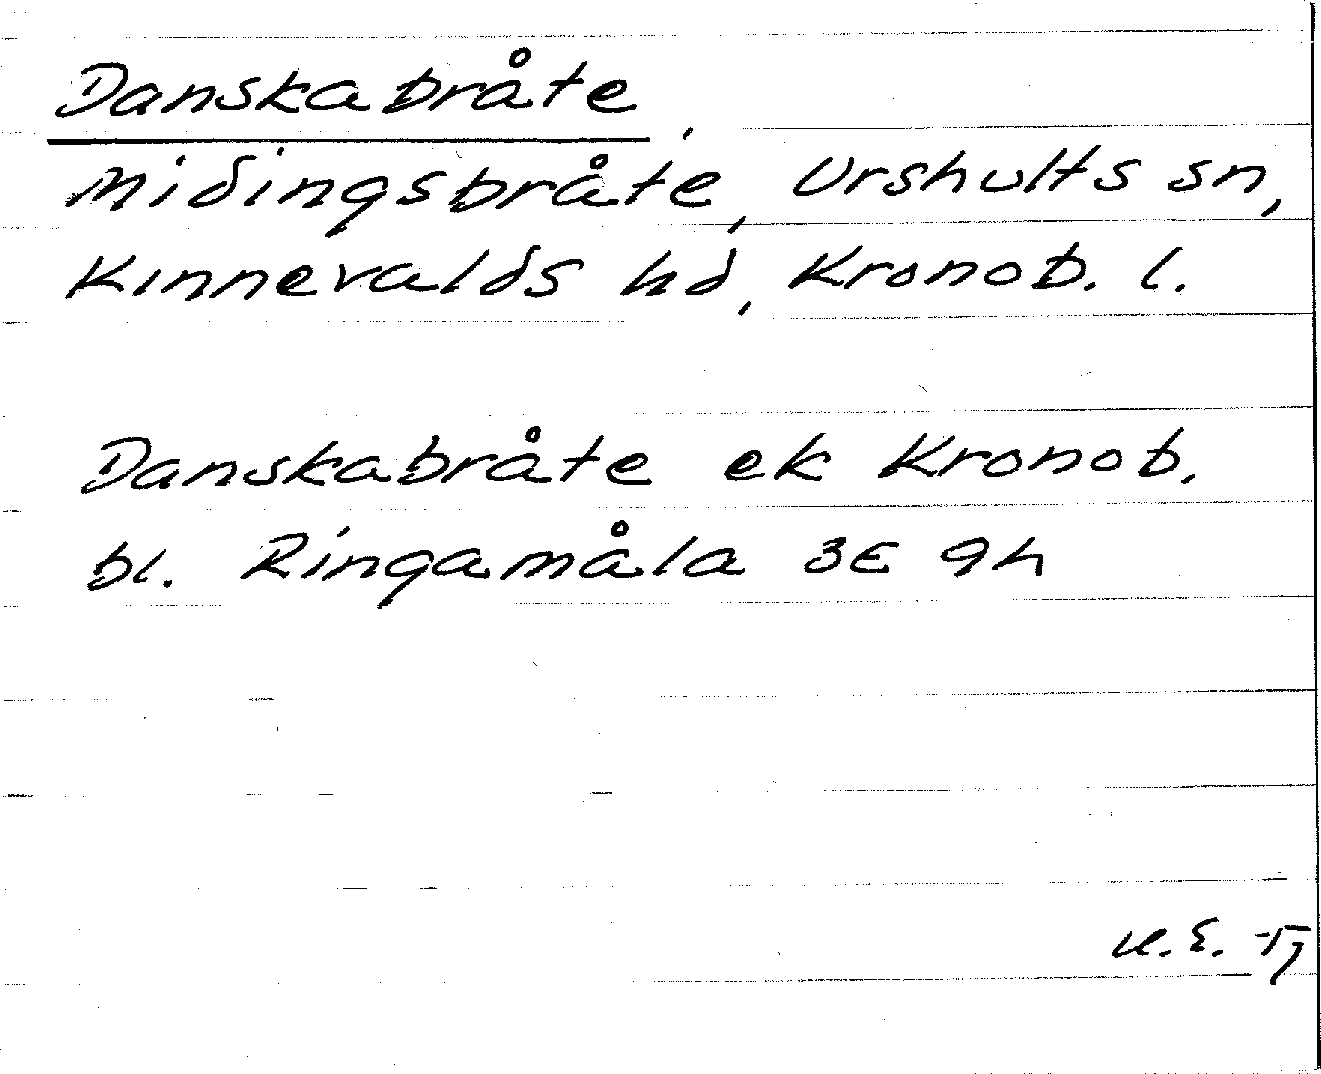 Danskabråte
Midingsbråte, Urshults sn,
Kinnevalds hd, Kronob. l.
Danskabråte ek Kronob.
bl. Ringamåla 3E 9h